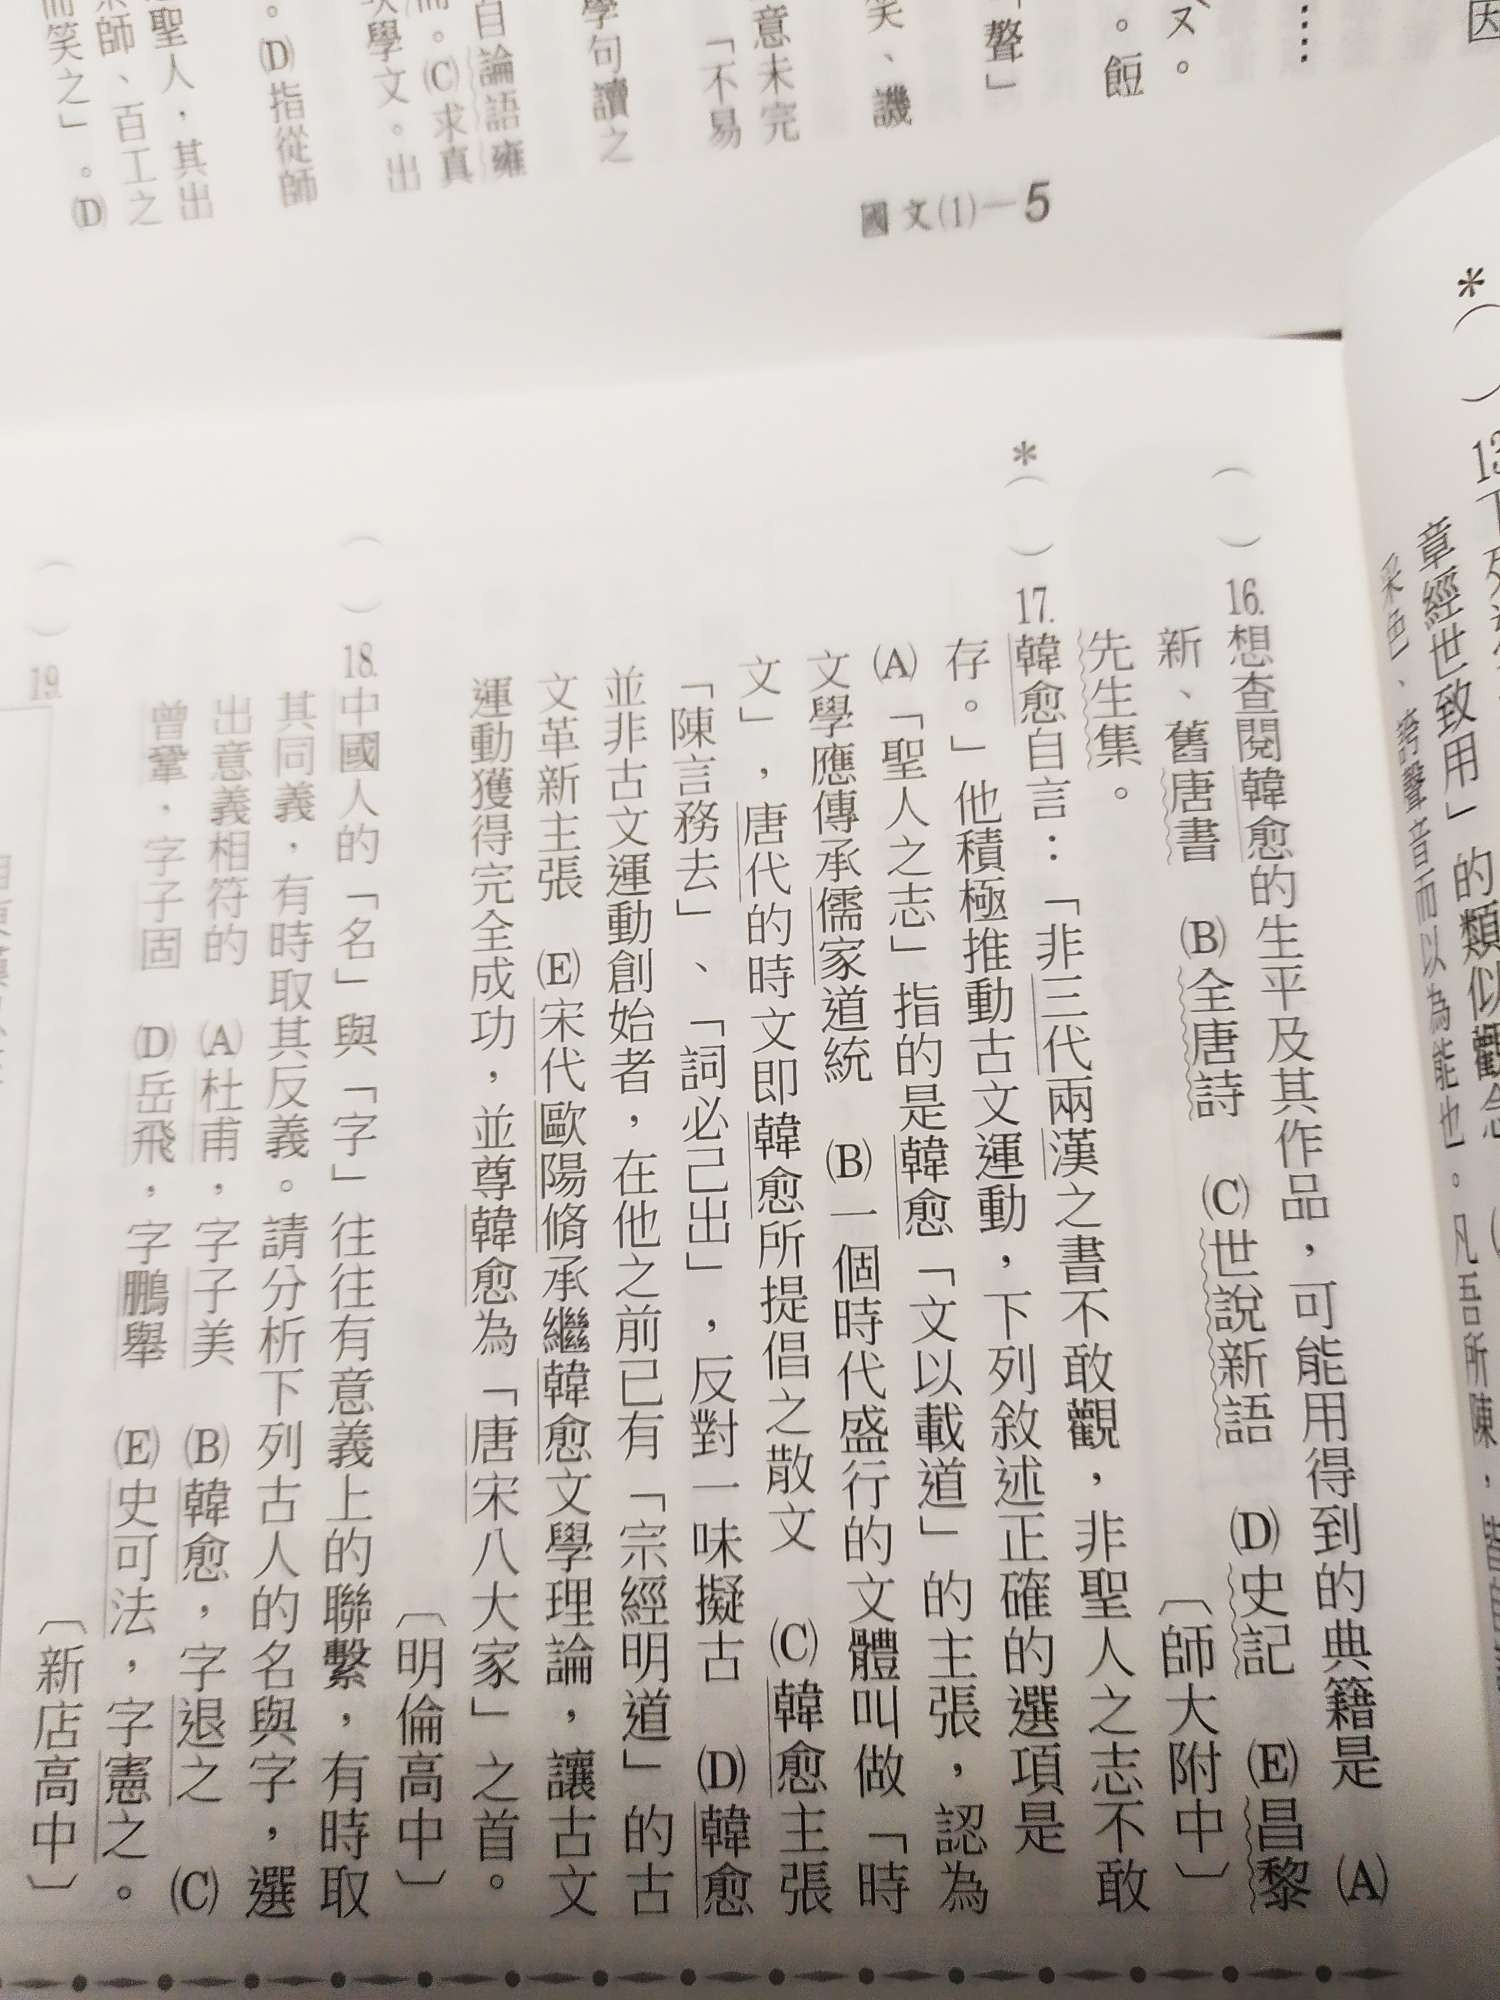 因
……
ㄡ。
。餖
「聱」
笑、譏
意未完
「不易
學句讀之
自論語雍
。(C)求真
學文。出
。(D)指從師
聖人，其出
師、百工之
而笑之」。(D)
國文(1)－5
章經世致用」的類似觀念
采色、誇聲音而以為能也。凡吾所陳，
(　)16.想查閱韓愈的生平及其作品，可能用得到的典籍是　(A)
新、舊唐書　(B)全唐詩　(C)世說新語　(D)史記　(E)昌黎
先生集。　〔師大附中〕
*(　)17.韓愈自言：「非三代兩漢之書不敢觀，非聖人之志不敢
存。」他積極推動古文運動，下列敘述正確的選項是
(A)「聖人之志」指的是韓愈「文以載道」的主張，認為
文學應傳承儒家道統　(B)一個時代盛行的文體叫做「時
文」，唐代的時文即韓愈所提倡之散文　(C)韓愈主張
「陳言務去」、「詞必己出」，反對一味擬古　(D)韓愈
並非古文運動創始者，在他之前已有「宗經明道」的古
文革新主張　(E)宋代歐陽脩承繼韓愈文學理論，讓古文
運動獲得完全成功，並尊韓愈為「唐宋八大家」之首。
〔明倫高中〕
(　)18.中國人的「名」與「字」往往有意義上的聯繫，有時取
其同義，有時取其反義。請分析下列古人的名與字，選
出意義相符的　(A)杜甫，字子美　(B)韓愈，字退之　(C)
曾鞏，字子固　(D)岳飛，字鵬舉　(E)史可法，字憲之。
〔新店高中〕
(　)19.